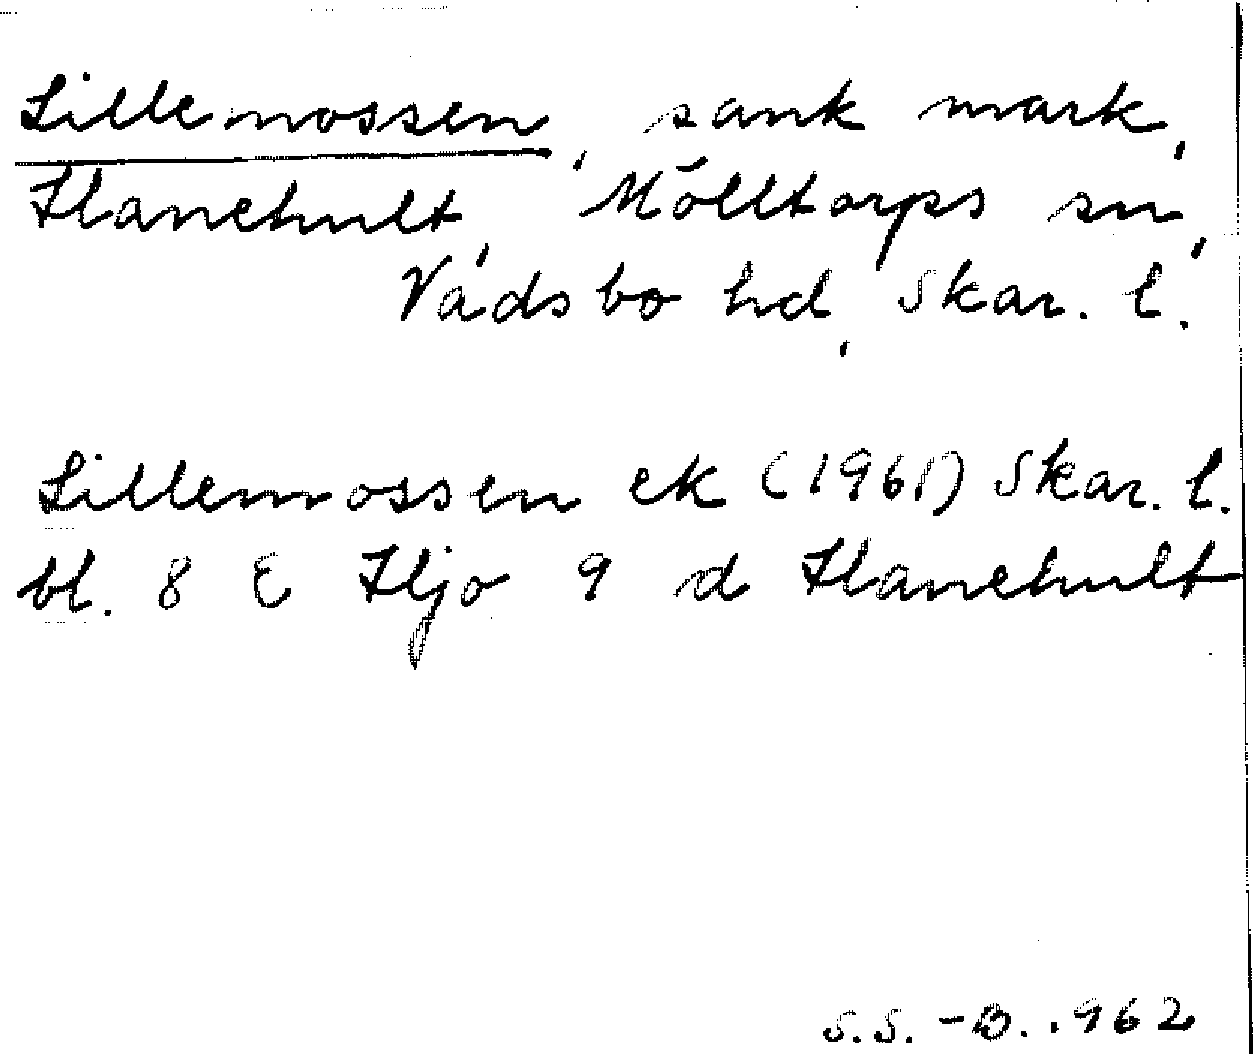 Lillemossen, sank mark,
Hanehult, Mölltorps sn,
Vadsbo hd, Skar. l.
Lillemossen ek (1961) Skar. l.
bl. 8 E Hjo 9 d Hanehult
S.S. -B. 1962